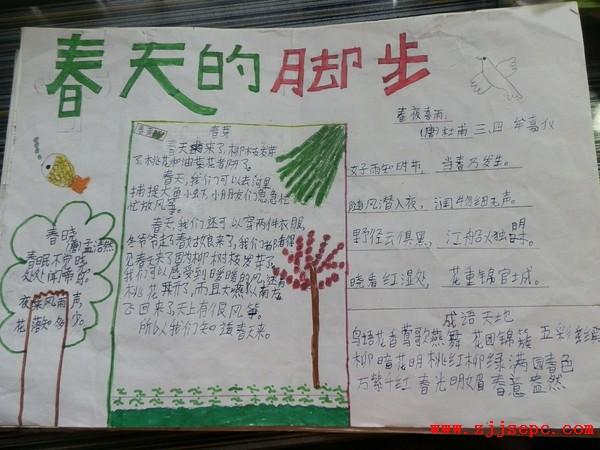 春天的脚步
春夜喜雨
(唐)杜甫 三、四 牟嘉仪
好雨知时节，当春乃发生。
随风潜入夜，润物细无声。
野径云俱黑，江船火独明。
晓看红湿处，花重锦官城。
成语天地
鸟语花香 莺歌燕舞 花团锦簇 五彩缤纷
柳暗花明 桃红柳绿 满园春色
万紫千红 春光明媚 春意盎然
春芽
春天来了，柳树发芽
了，桃花和油菜花者开了。
春天，我们可以去河里
捕捉大鱼小虾，小朋友们急急忙
忙放风筝。
春天，我们还可以穿两件衣服，
冬爷爷走了春姑娘来了，我们都看得
见春天来了，因为柳树发芽了，
我们可以感受到暖暖的风，还有
桃花开了，而且大燕从南方
飞回来了，天上有很风筝。
所以我们知道春天来。
春晓
(唐)孟浩然
春眠不觉晓，
处处闻啼鸟。
夜来风雨声，
花落知多少。
www.zjjsepc.com